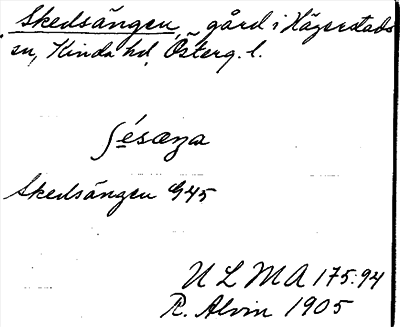 Skedsängen, gård i Hägerstads
sn, Kinda hd, Österg. l.
ʃésæŋa
Skedsängen G45
U L M A 175:94
R. Alvin 1905